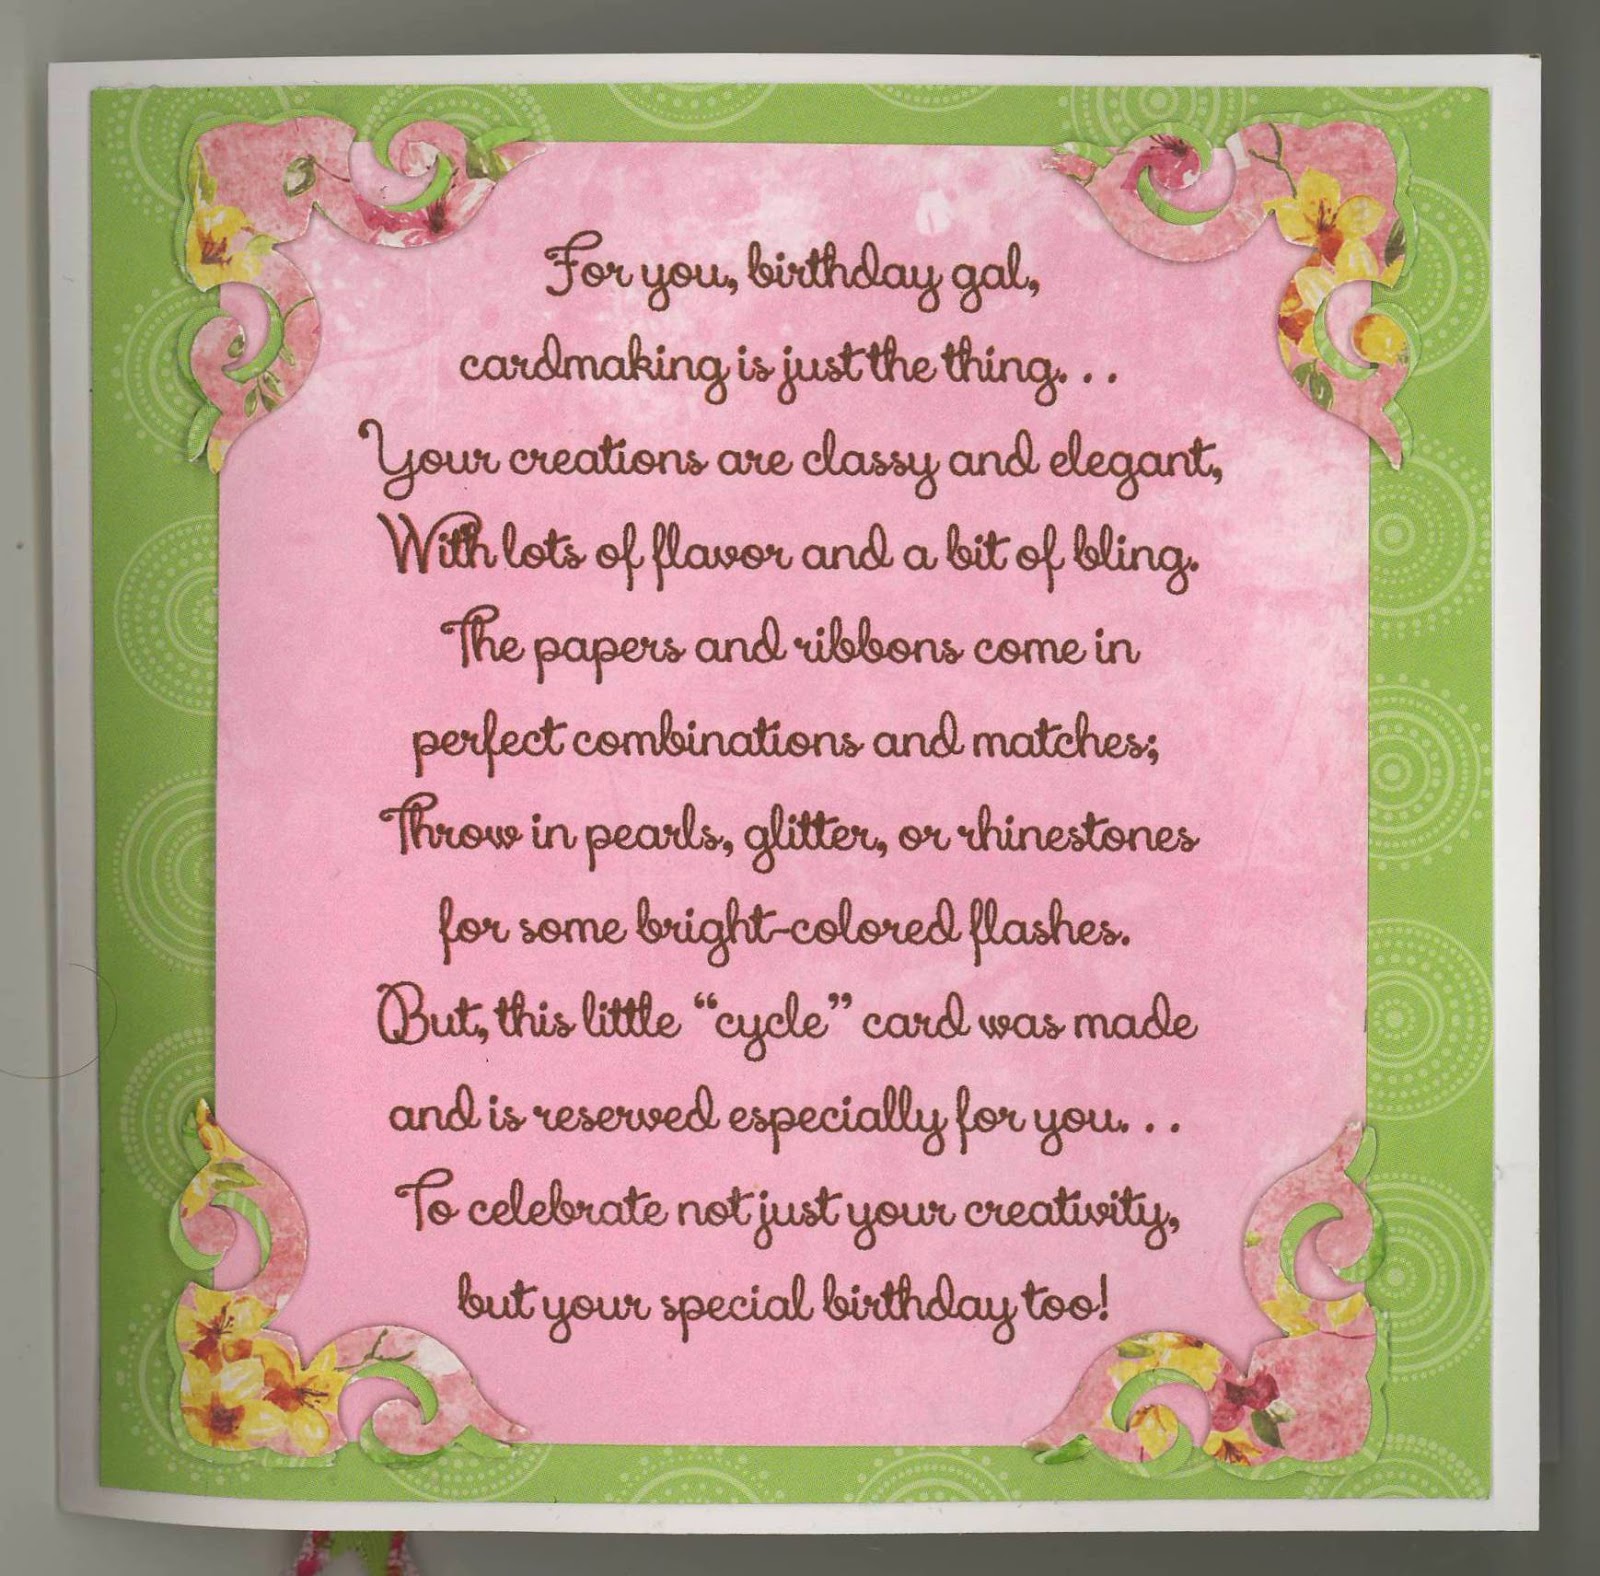 For you, birthday gal,
cardmaking is just the thing. . .
Your creations are classy and elegant,
With lots of flavor and a bit of bling.
The papers and ribbons come in
perfect combinations and matches;
Throw in pearls, glitter, or rhinestones
for some bright-colored flashes.
But, this little “cycle” card was made
and is reserved especially for you. . .
To celebrate not just your creativity,
but your special birthday too!